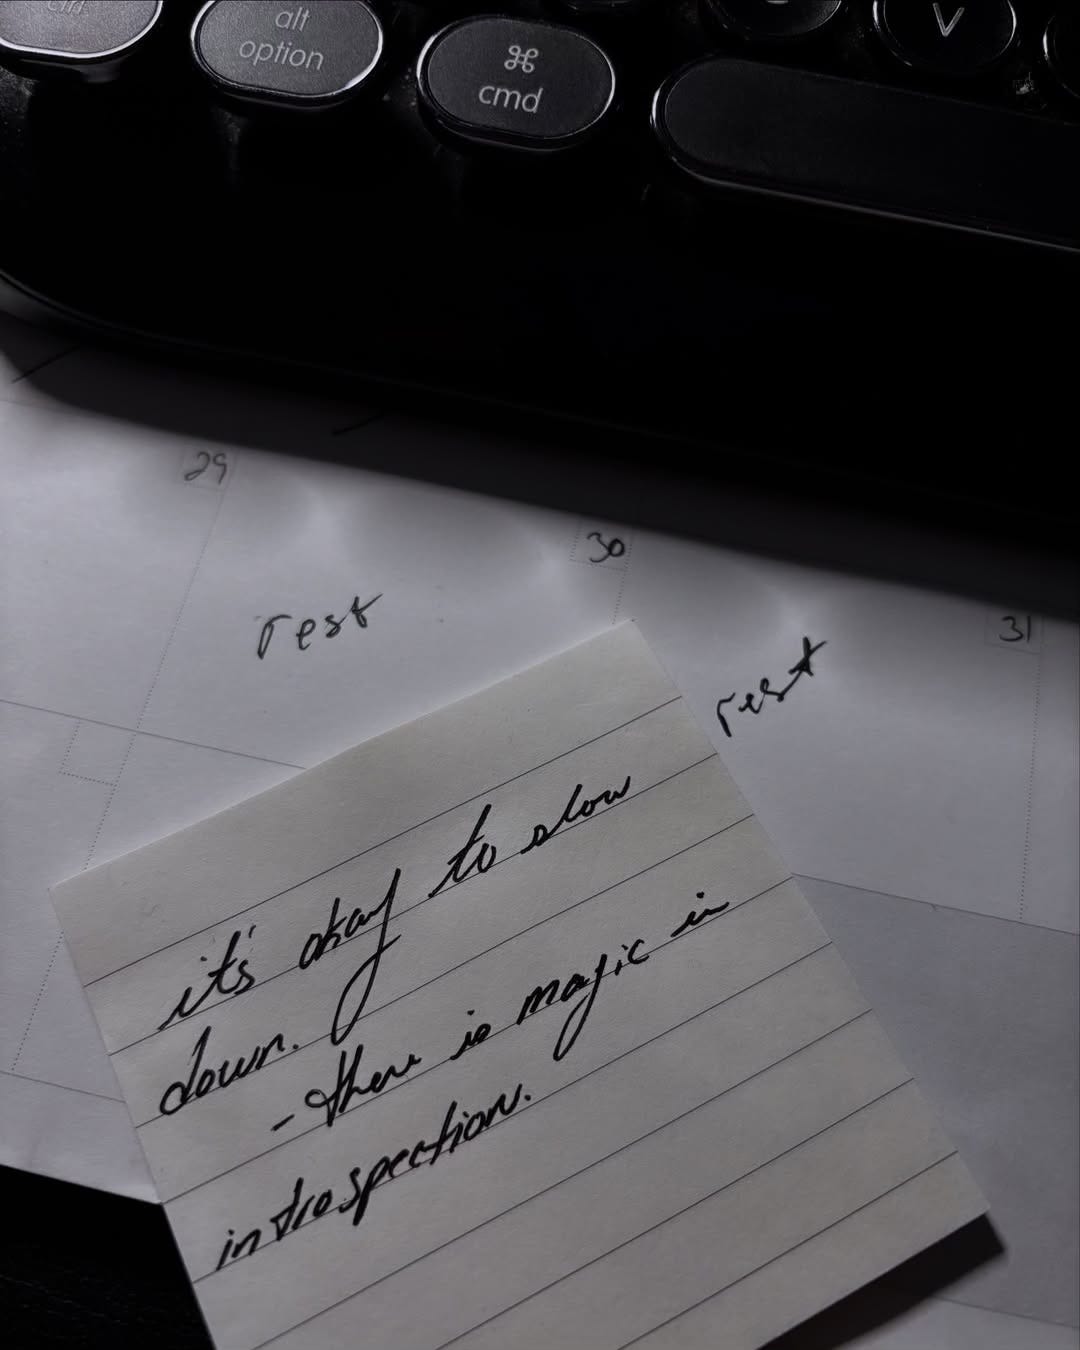 ctrl
alt
option
⌘
cmd
V
29
30
31
rest
rest
it's okay to slow
down.
- there is magic in
introspection.